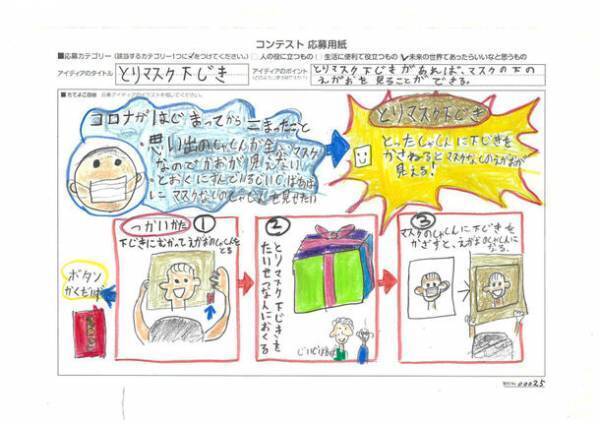 コンテスト 応募用紙
■応募カテゴリー(該当するカテゴリー1つに✓をつけてください。) □人の役に立つもの □生活に便利で役立つもの ✓未来の世界であったらいいなと思うもの
アイディアのタイトル
とりマスク下じき
アイディアのポイント
とりマスク下じきがあれば、マスクの下の
えがおを見ることができる。
コロナがはじまってからこまったこと
・思い出のしゃしんが全ぶマスク
なのでかおが見えない
・とおくにすんでいるじいじ、ばあば
に マスクなしのしゃしんを見せたい
とりマスク下じき
とったしゃしんに下じきを
かさねるとマスクなしのえがおが
見える!
つかいかた
①
下じきにむかってえがおのしゃしんを
とる
ボタン
かくだい
②
とりマスク下じきを
たいせつな人におくる
③
マスクのしゃしんに下じきを
かざすと、えがおのしゃしんに
なる。
00025